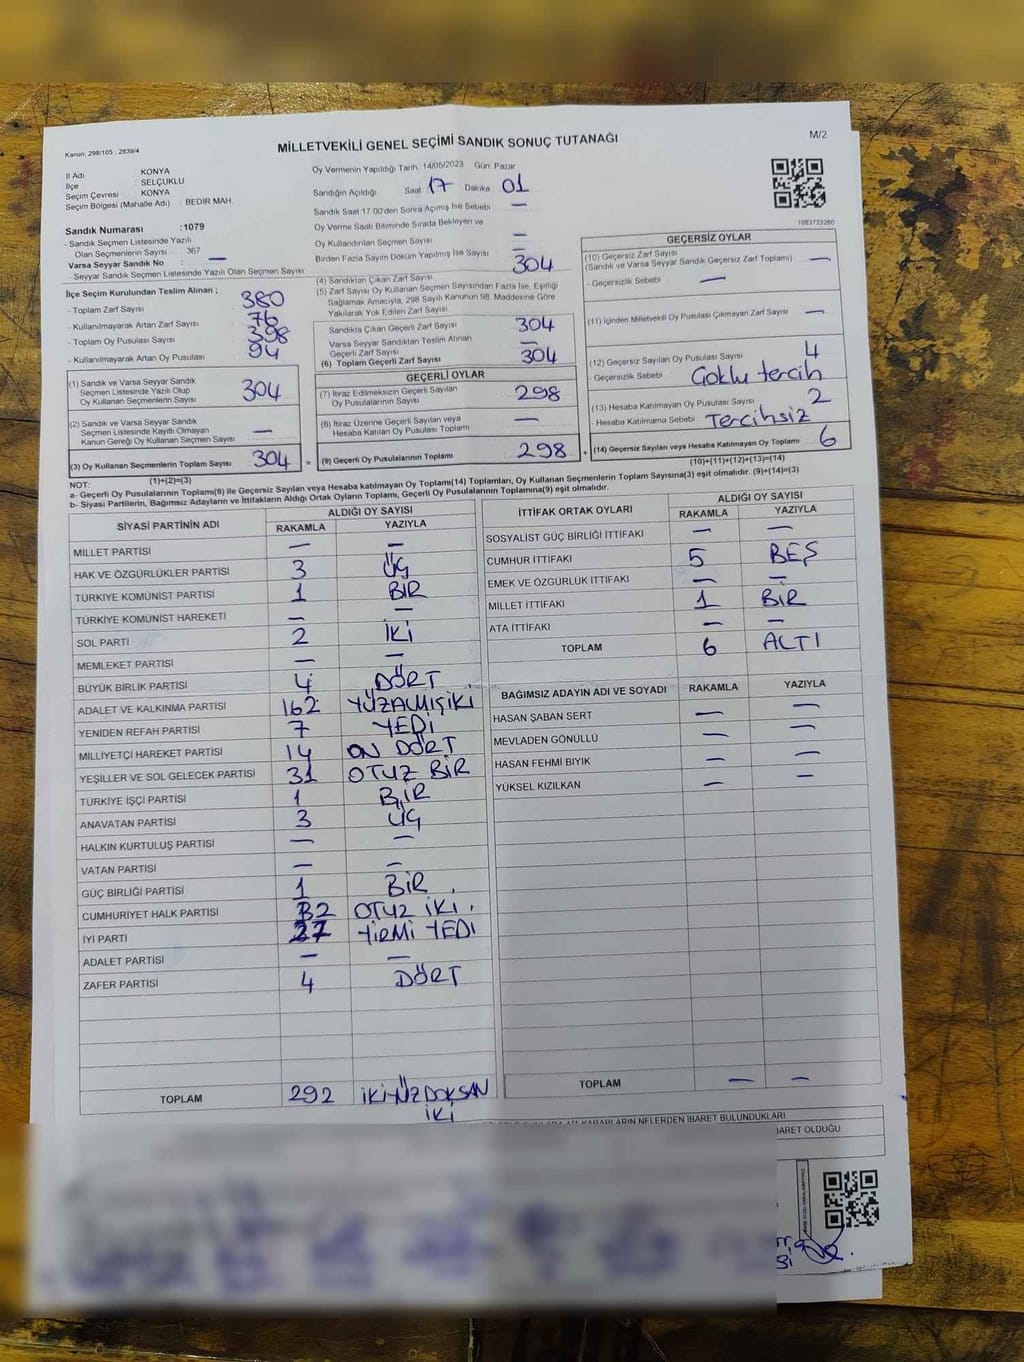 Kanun: 298/105 , 2839/4
MİLLETVEKİLİ GENEL SEÇİMİ SANDIK SONUÇ TUTANAĞI
M/2
İl Adı KONYA
İlçe SELÇUKLU
Seçim Çevresi : KONYA
Seçim Bölgesi (Mahalle Adı) : BEDİR MAH.
Sandık Numarası :1079
- Sandık Seçmen Listesinde Yazılı
Olan Seçmenlerin Sayısı : 367
Varsa Seyyar Sandık No : —
- Seyyar Sandık Seçmen Listesinde Yazılı Olan Seçmen Sayısı
Oy Vermenin Yapıldığı Tarih: 14/05/2023 Gün: Pazar
Sandığın Açıldığı Saat 17 Dakika 01
Sandık Saat 17:00'den Sonra Açılmış İse Sebebi —
Oy Verme Saati Bitiminde Sırada Bekleyen ve
Oy Kullandırılan Seçmen Sayısı —
Birden Fazla Sayım Döküm Yapılmış İse Sayısı —
1083733260
İlçe Seçim Kurulundan Teslim Alınan ;
- Toplam Zarf Sayısı 380
- Kullanılmayarak Artan Zarf Sayısı 76
- Toplam Oy Pusulası Sayısı 398
- Kullanılmayarak Artan Oy Pusulası 94
(1) Sandık ve Varsa Seyyar Sandık
Seçmen Listesinde Yazılı Olup
Oy Kullanan Seçmenlerin Sayısı 304
(2) Sandık ve Varsa Seyyar Sandık
Seçmen Listesinde Kayıtlı Olmayan
Kanun Gereği Oy Kullanan Seçmen Sayısı —
(3) Oy Kullanan Seçmenlerin Toplam Sayısı 304 =
(1)+(2)=(3)
(4) Sandıktan Çıkan Zarf Sayısı 304
(5) Zarf Sayısı Oy Kullanan Seçmen Sayısından Fazla İse, Eşitliği
Sağlamak Amacıyla, 298 Sayılı Kanunun 98. Maddesine Göre
Yakılarak Yok Edilen Zarf Sayısı
Sandıkta Çıkan Geçerli Zarf Sayısı 304
Varsa Seyyar Sandıktan Teslim Alınan
Geçerli Zarf Sayısı —
(6) Toplam Geçerli Zarf Sayısı 304
GEÇERLİ OYLAR
(7) İtiraz Edilmeksizin Geçerli Sayılan
Oy Pusulalarının Sayısı 298
(8) İtiraz Üzerine Geçerli Sayılan veya
Hesaba Katılan Oy Pusulası Toplamı —
(9) Geçerli Oy Pusulalarının Toplamı 298 +
GEÇERSİZ OYLAR
(10) Geçersiz Zarf Sayısı
(Sandık ve Varsa Seyyar Sandık Geçersiz Zarf Toplamı) —
- Geçersizlik Sebebi : —
(11) İçinden Milletvekili Oy Pusulası Çıkmayan Zarf Sayısı —
(12) Geçersiz Sayılan Oy Pusulası Sayısı 4
- Geçersizlik Sebebi : Çoklu tercih
(13) Hesaba Katılmayan Oy Pusulası Sayısı 2
- Hesaba Katılmama Sebebi : Tercihsiz
(14) Geçersiz Sayılan veya Hesaba Katılmayan Oy Toplamı 6
(10)+(11)+(12)+(13)=(14)
NOT:
a- Geçerli Oy Pusulalarının Toplamı(9) ile Geçersiz Sayılan veya Hesaba katılmayan Oy Toplamı(14) Toplamları, Oy Kullanan Seçmenlerin Toplam Sayısına(3) eşit olmalıdır. (9)+(14)=(3)
b- Siyasi Partilerin, Bağımsız Adayların ve İttifakların Aldığı Ortak Oyların Toplamı, Geçerli Oy Pusulalarının Toplamına(9) eşit olmalıdır.
SİYASİ PARTİNİN ADI ALDIĞI OY SAYISI
RAKAMLA YAZIYLA
MİLLET PARTİSİ — —
HAK VE ÖZGÜRLÜKLER PARTİSİ 3 ÜÇ
TÜRKİYE KOMÜNİST PARTİSİ 1 BİR
TÜRKİYE KOMÜNİST HAREKETİ — —
SOL PARTİ 2 İKİ
MEMLEKET PARTİSİ — —
BÜYÜK BİRLİK PARTİSİ 4 DÖRT
ADALET VE KALKINMA PARTİSİ 162 YÜZALMIŞİKİ
YENİDEN REFAH PARTİSİ 7 YEDİ
MİLLİYETÇİ HAREKET PARTİSİ 14 ON DÖRT
YEŞİLLER VE SOL GELECEK PARTİSİ 31 OTUZ BİR
TÜRKİYE İŞÇİ PARTİSİ 1 BİR
ANAVATAN PARTİSİ 3 ÜÇ
HALKIN KURTULUŞ PARTİSİ — —
VATAN PARTİSİ — —
GÜÇ BİRLİĞİ PARTİSİ 1 BİR
CUMHURİYET HALK PARTİSİ 32 OTUZ İKİ
İYİ PARTİ 27 YİRMİ YEDİ
ADALET PARTİSİ — —
ZAFER PARTİSİ 4 DÖRT
TOPLAM 292 İKİYÜZDOKSAN
İKİ
İTTİFAK ORTAK OYLARI ALDIĞI OY SAYISI
RAKAMLA YAZIYLA
SOSYALİST GÜÇ BİRLİĞİ İTTİFAKI — —
CUMHUR İTTİFAKI 5 BEŞ
EMEK VE ÖZGÜRLÜK İTTİFAKI — —
MİLLET İTTİFAKI 1 BİR
ATA İTTİFAKI — —
TOPLAM 6 ALTI
BAĞIMSIZ ADAYIN ADI VE SOYADI RAKAMLA YAZIYLA
HASAN ŞABAN SERT — —
MEVLADEN GÖNÜLLÜ — —
HASAN FEHMİ BIYIK — —
YÜKSEL KIZILKAN — —
TOPLAM — —
KARARLARIN NELERDEN İBARET BULUNDUKLARI
İBARET OLDUĞU